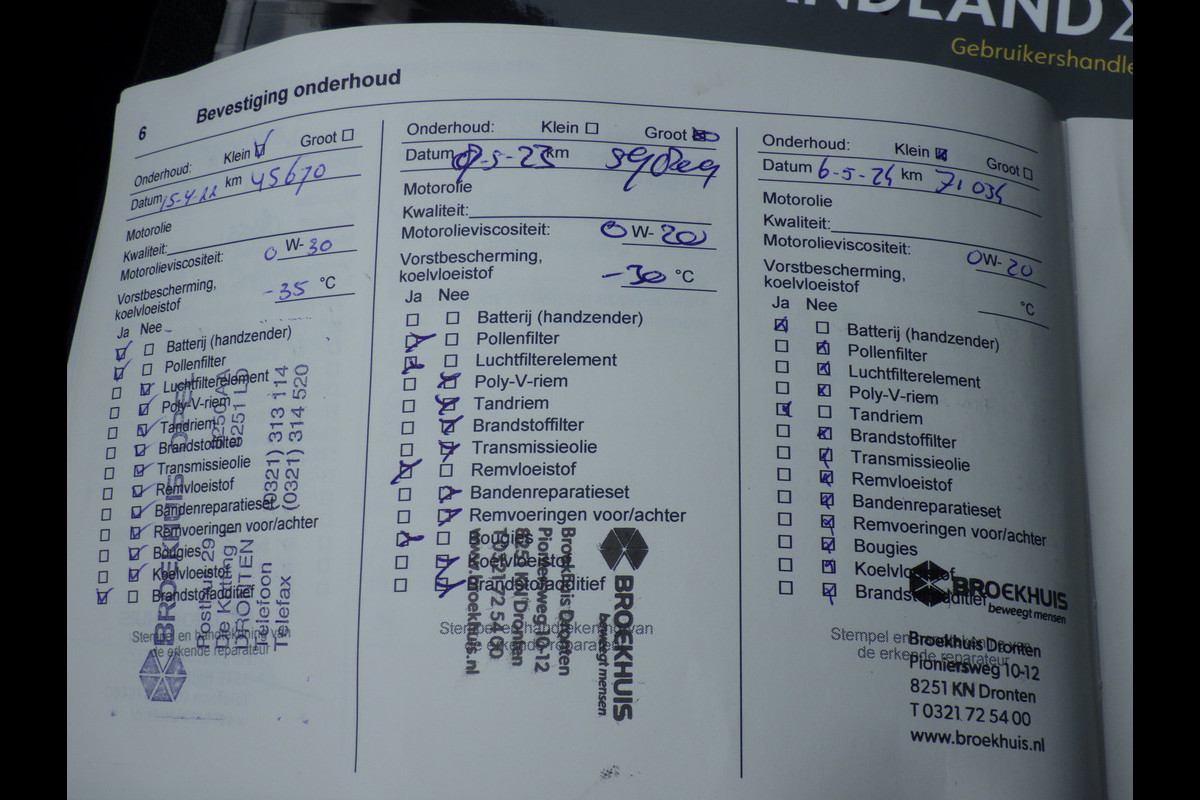 ANDLAND X
Gebruikershandle
6 Bevestiging onderhoud
Onderhoud: Klein Groot
Datum 15-4-22 km 45670
Motorolie
Kwaliteit:
Motorolieviscositeit: 0 W- 30
Vorstbescherming,
koelvloeistof -35 °C
Ja Nee
Batterij (handzender)
Pollenfilter
Luchtfilterelement
Poly-V-riem
Tandriem
Brandstoffilter
Transmissieolie
Remvloeistof
Bandenreparatieset
Remvoeringen voor/achter
Bougies
Koelvloeistof
Brandstofadditief
Stempel en handtekening van
de erkende reparateur
BROEKHUIS OPEL
Postbus 29 8250 AA
De Ketting 1 8251 LD
DRONTEN
Telefoon (0321) 313 114
Telefax (0321) 314 520
Onderhoud: Klein Groot
Datum -5-23 km
Motorolie
Kwaliteit:
Motorolieviscositeit: 0 W- 20
Vorstbescherming,
koelvloeistof -30 °C
Ja Nee
Batterij (handzender)
Pollenfilter
Luchtfilterelement
Poly-V-riem
Tandriem
Brandstoffilter
Transmissieolie
Remvloeistof
Bandenreparatieset
Remvoeringen voor/achter
Bougies
Koelvloeistof
Brandstofadditief
Stempel en handtekening van
de erkende reparateur
BROEKHUIS
beweegt mensen.
Broekhuis Dronten
Pioniersweg 10-12
8251 KN Dronten
T 0321 72 54 00
www.broekhuis.nl
Onderhoud: Klein Groot
Datum 6-5-24 km 71034
Motorolie
Kwaliteit:
Motorolieviscositeit: 0W- 20
Vorstbescherming,
koelvloeistof °C
Ja Nee
Batterij (handzender)
Pollenfilter
Luchtfilterelement
Poly-V-riem
Tandriem
Brandstoffilter
Transmissieolie
Remvloeistof
Bandenreparatieset
Remvoeringen voor/achter
Bougies
Koelvloeistof
Brandstofadditief
Stempel en handtekening van
de erkende reparateur
BROEKHUIS
beweegt mensen
Broekhuis Dronten
Pioniersweg 10-12
8251 KN Dronten
T 0321 72 54 00
www.broekhuis.nl